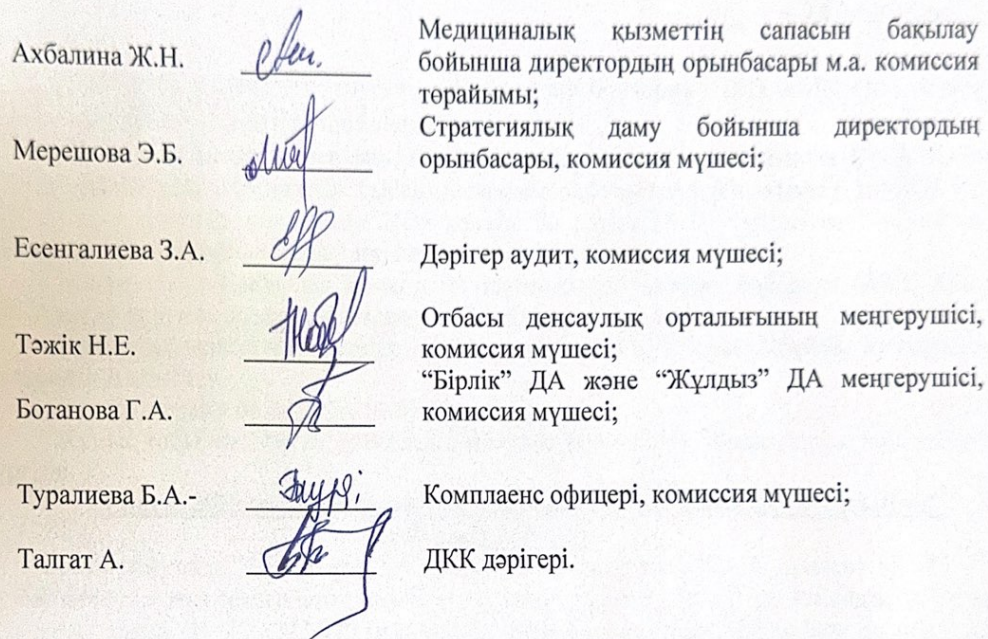 Ахбалина Ж.Н. Медициналық қызметтің сапасын бақылау
бойынша директордың орынбасары м.а. комиссия
торайымы;
Мерешова Э.Б. Стратегиялық даму бойынша директордың
орынбасары, комиссия мүшесі;
Есенгалиева З.А. Дәрігер аудит, комиссия мүшесі;
Тәжік Н.Е. Отбасы денсаулық орталығының меңгерушісі,
комиссия мүшесі;
Ботанова Г.А. “Бірлік” ДА және “Жұлдыз” ДА меңгерушісі,
комиссия мүшесі;
Туралиева Б.А.- Комплаенс офицері, комиссия мүшесі;
Талгат А. ДКК дәрігері.